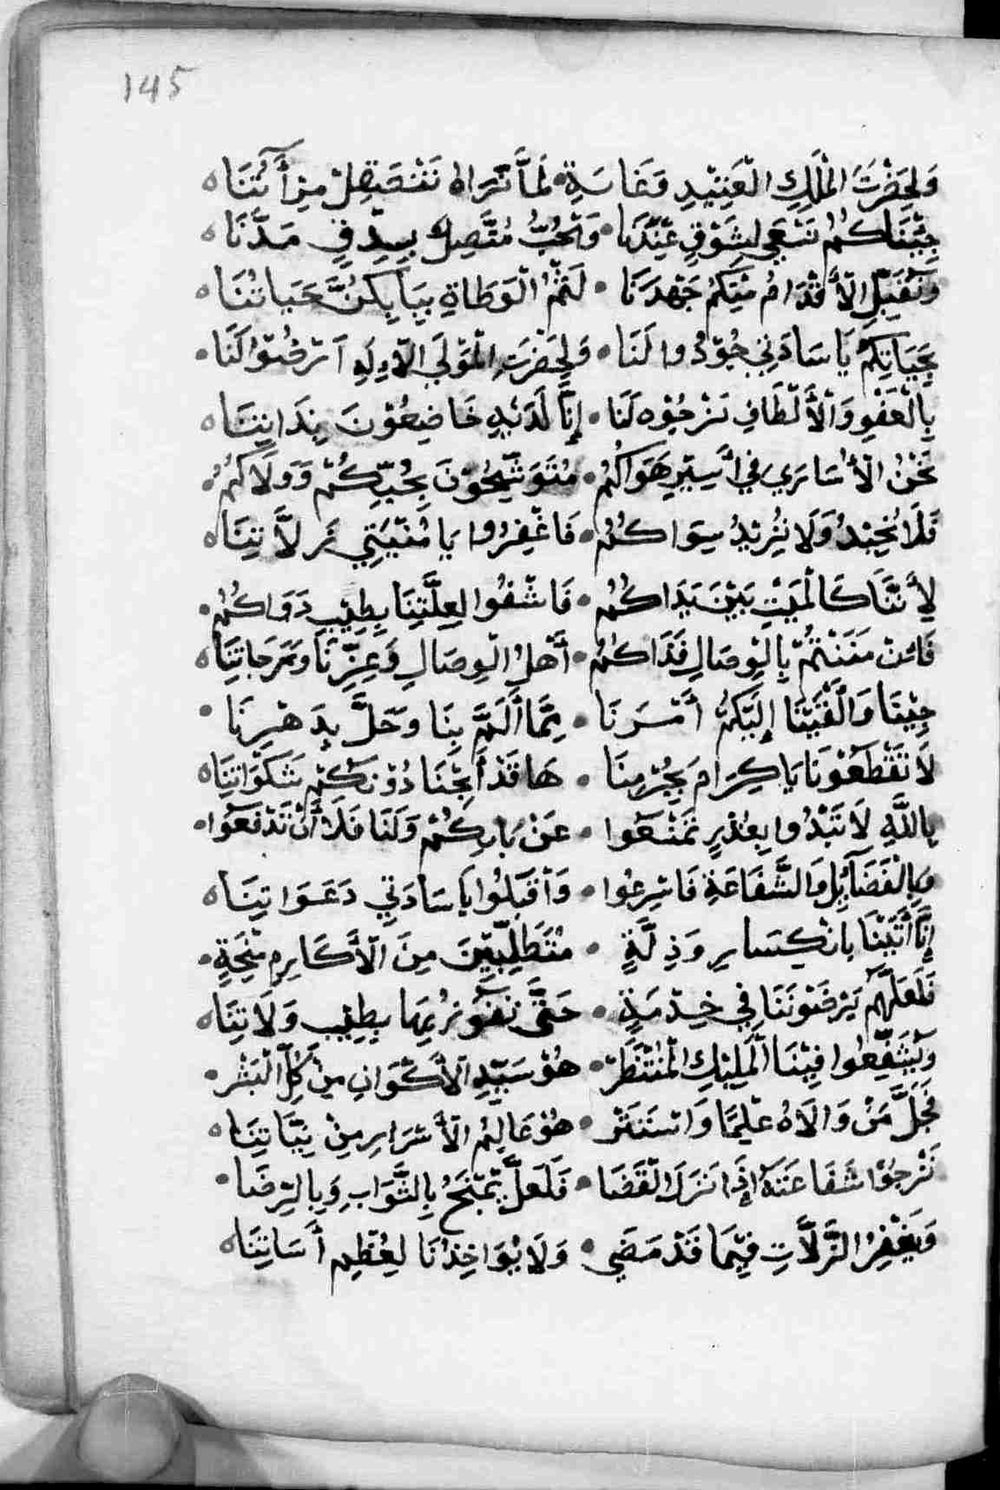 145
وَلِحَضْرَتِ الْمَلِكِ الْعَنِيْدِ وَقَاسَةٍ • لَمَّا تَرَاهُ تَنْصَقِلْ مِرْأَتُنَا
جِئْنَاكُمْ نَسْعَى لِشَوْقٍ عِنْدَنَا • وَنُحِبُّ مُتَّصِلٌ بِصِدْقٍ مَدَّنَا
وَنُقَبِّلُ الْأَقْدَامُ مِنْكُمْ جَهْدَنَا • لَثْمُ الْوَطَاةِ بِبَابِكُنَّ حَيَاتُنَا
بِحَيَاتِكُمْ يَا سَادَتِي جُوْدُوا لَنَا • وَلِحَضْرَتِ الْمَوْلَى الْاِلَهِ اَرْضُوْا لَنَا
بِالْعَفْوِ وَالْأَلْطَافِ نَرْجُوْه لَنَا • إِنَّا لَدَيْهِ خَاضِعُوْنَ بِذَاتِنَا
نَحْنُ الْأُسَارَى فِي أَسِيْرِ هَوَاكُمْ • مُتَوَشِّحُوْنَ بِحُبِّكُمْ وَوَلَاكُمْ
فَلَا نُحِيْدُ وَلَا نُرِيْدُ سِوَاكُمْ • فَاغْفِرُوا يَا مُنْيَتِي زَلَّاتِنَا
لِأَنَّنَا كَالْمَيْتِ بَيْنَ يَدَاكُمْ • فَاشْفُوا لِعِلَّتِنَا بِطِيْبِ دَوَاكُمْ
فَإِنْ مَنَنْتُمْ بِالْوِصَالِ فَذَاكُمْ • أَهْلُ الْوِصَالِ وَعِزِّنَا وَنَرَجَاتِنَا
جِيْنَا وَالْقَيْنَا إِلَيْكُمْ أَمْرَنَا • مِمَّا أَلَمَّ بِنَا وَحَلَّ بِدَهْرِنَا
لَا تَقْطَعُوْنَا يَا كِرَامُ بِجُرْمِنَا • هَا قَدْ أَبْحَنَا دُوْنَكُمْ شَكْوَاتِنَا
بِاللَّهِ لَا تَبْدُوا بِعُذْرٍ تَمْنَعُوا • عَنْ بَابِكُمْ وَلَنَا فَلَا أَنْ تَدْفَعُوا
وَبِالْفَضَائِلِ وَالشَّفَاعَةِ فَاسْرِعُوا • وَاقْبَلُوا يَا سَادَتِي دَعَوَاتِنَا
إِنَّا أَتَيْنَا بِانْكِسَارٍ وَذِلَّةٍ • مُتَطَلِّبِيْنَ مِنَ الْأَكَارِمِ مِنْحَةٍ
فَلَعَلَّهُمْ يَرْضَوْنَنَا فِي خِدْمَةٍ • حَتَّى نَفُوْزُ بِهَا بِطِيْبِ وَلَاتِنَا
وَيَشْفَعُوا فِيْنَا الْمَلِيْكِ الْمُنْتَظَرْ • هُوْ سَيِّدِ الْأَكْوَانِ مِنْ كُلِّ الْبَشَرْ
نَجَلَّ مَنْ وَالَاهُ عِلْمًا وَاسْتَتَرْ • هُوْ عَالِمُ الْأَسْرَارِ مِنْ نِيَّاتِنَا
نَرْجُوْا شَفَاعَتَهُ إِذَا نَزَلَ الْقَضَا • فَلَعَلَّ يَمْنَحُ بِالثَّوَابِ وَبِالرِّضَا
وَيَغْفِرُ الزَّلَّاتِ فِيْمَا قَدْ مَضَى • وَلَا يُوَاخِذُنَا لِعُظْمِ أَسَاتِنَا